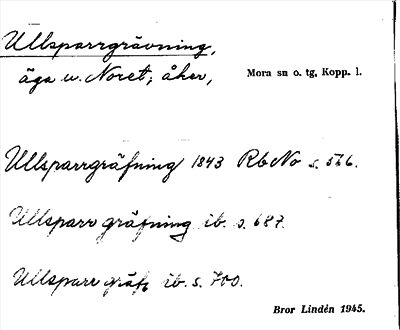 Ullsparrgrävning,
äga u. Noret; åker, Mora sn o. tg, Kopp. l.
Ullsparrgräfning 1843 RbNo s. 576.
Ullsparr gräfning ib. s. 687.
Ullspare gräf. ib. s. 700.
Bror Lindén 1945.